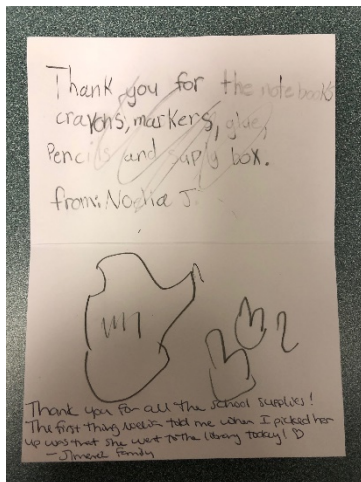 Thank you for the notebooks
crayons, markers, glue,
Pencils and suply box.
from: Nodia J
Thank you for all the school supplies!
The first thing told me when I picked her
up was that she went to the library today!
Family